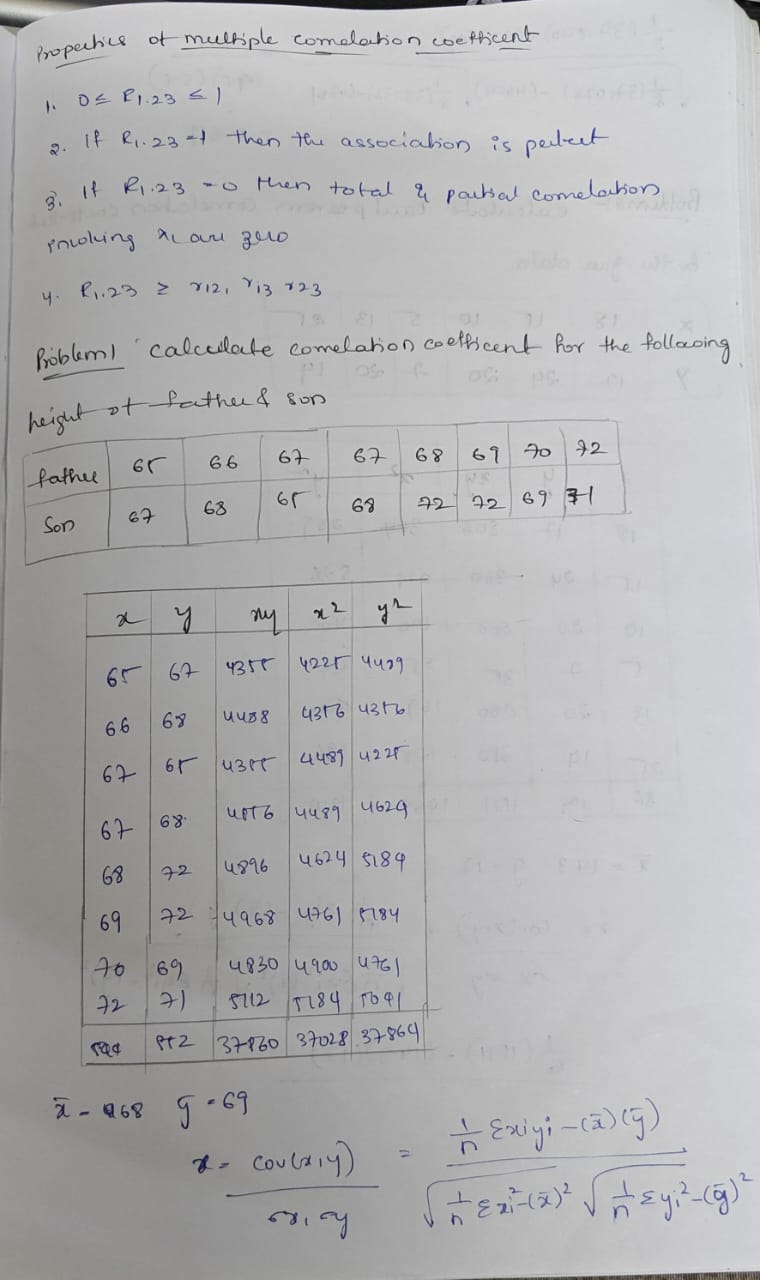 Properties of multiple correlation coefficent
1. 0 ≤ R1.23 ≤ 1
2. If R1.23 = 1 then the association is perfect
3. If R1.23 = 0 then total & partial correlation
involving x1 are zero
4. R1.23 ≥ r12, r13 r23
Problem 1 calculate correlation coefficent for the following
height of father & son
father 65 66 67 67 68 69 70 72
Son 67 68 65 68 72 72 69 71
x y xy x2 y2
65 67 4355 4225 4489
66 68 4488 4356 4356
67 65 4355 4489 4225
67 68 4556 4489 4624
68 72 4896 4624 5184
69 72 4968 4761 5184
70 69 4830 4900 4761
72 71 5112 5184 5041
544 552 37560 37028 37864
x̄ = 68 ȳ = 69
r = cov(x,y) / σx, σy = 1/n Σxiyi - (x̄)(ȳ) / √1/n Σxi² - (x̄)² √1/n Σyi² - (ȳ)²